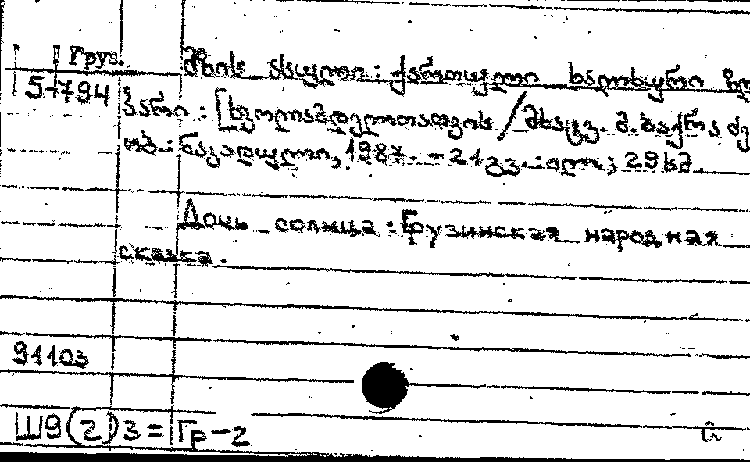 Груз.
მზის ასული : ქართული ხალხური ზღ
5-794
პარი : [სკოლამდელთათვის / მხატვ. მ. ბაქრაძე
თბ. : ნაკადული, 1987. - 21 გვ. : ილ ; 29 სმ.
Дочь солнца : Грузинская народная
сказка.
91103
Ш9(2)3 = Гр-2